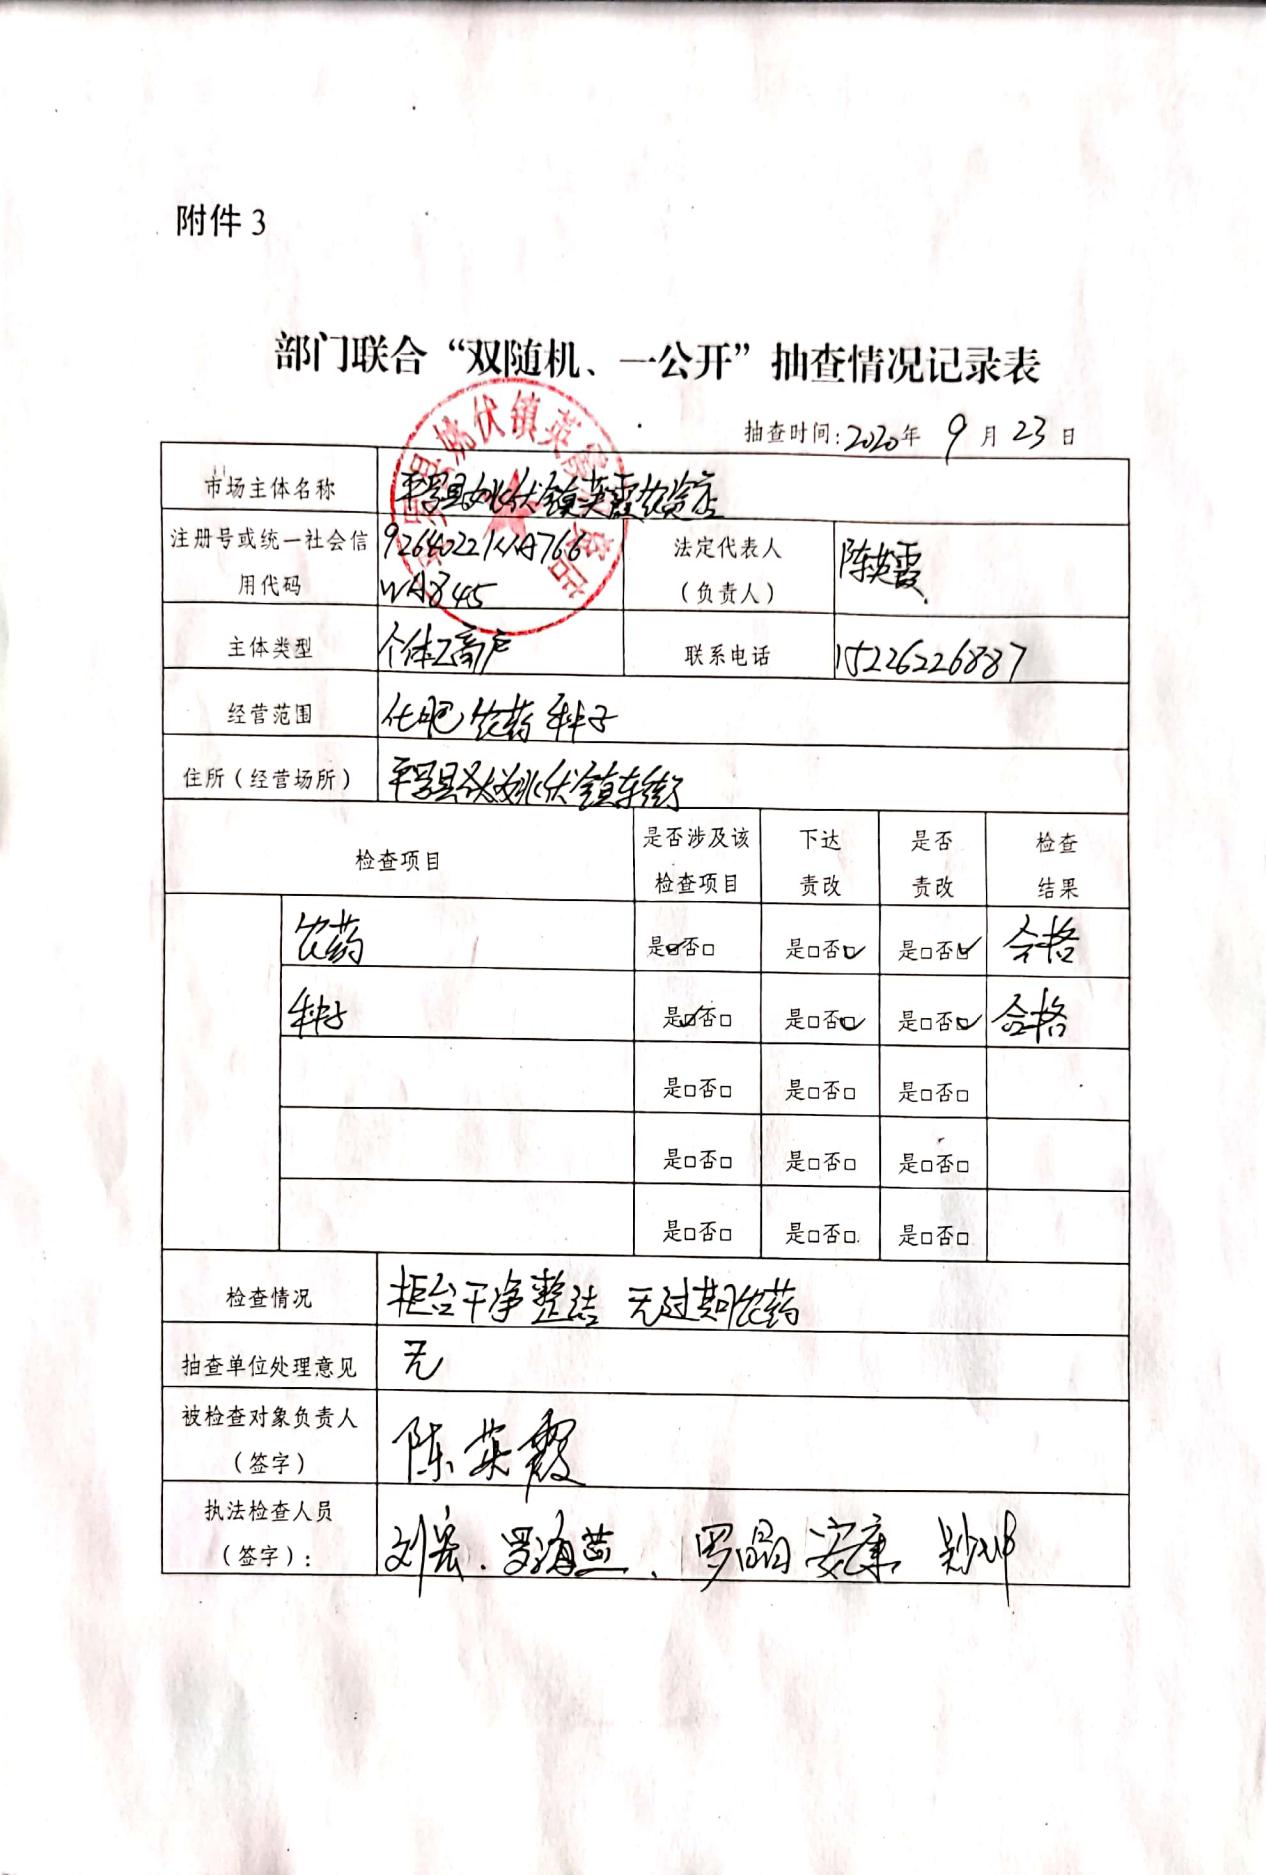 附件3
部门联合“双随机、一公开”抽查情况记录表
抽查时间：2020年 9 月 23 日
市场主体名称 平罗县姚伏镇英霞农资店
注册号或统一社会信用代码 92640221MA766WA845
法定代表人（负责人） 陈英霞
主体类型 个体工商户 联系电话 15226226887
经营范围 化肥 农药 种子
住所（经营场所） 平罗县姚伏镇东街
检查项目 是否涉及该检查项目 下达责改 是否责改 检查结果
农药 是☑否□ 是□否☑ 是□否☑ 合格
种子 是☑否□ 是□否☑ 是□否☑ 合格
是□否□ 是□否□ 是□否□
是□否□ 是□否□ 是□否□
是□否□ 是□否□ 是□否□
检查情况 柜台干净整洁 无过期农药
抽查单位处理意见 无
被检查对象负责人（签字） 陈英霞
执法检查人员（签字）： 刘宏、罗海燕、罗晶 安康